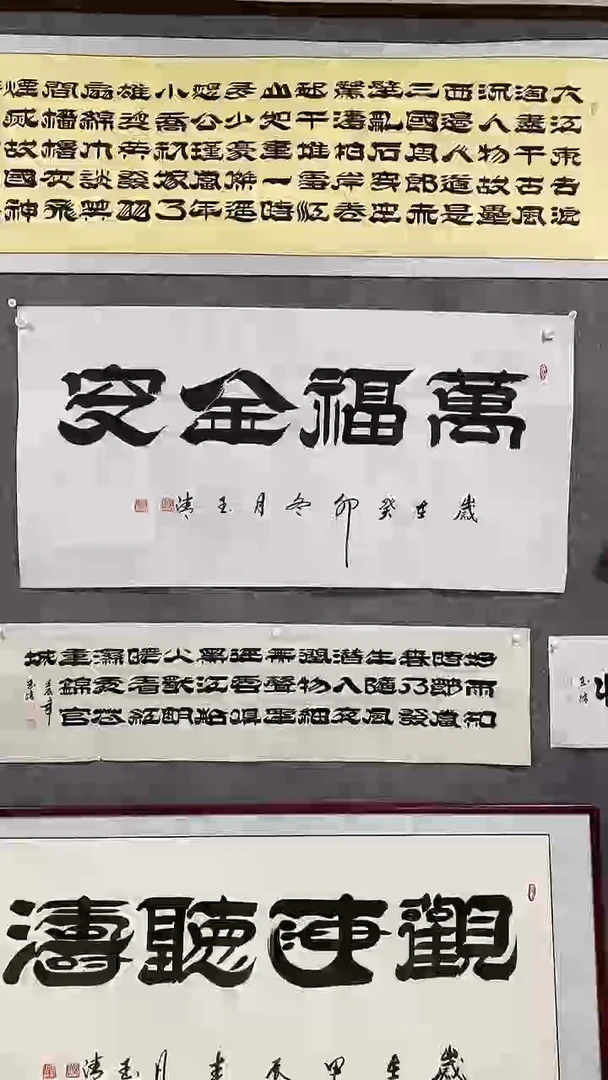 大江東去浪
淘盡千古風
流人物故壘
西邊人道是
三國周郎赤
壁亂石穿空
驚濤拍岸卷
起千堆雪江
山如畫一時
多少豪傑遥
想公瑾當年
小喬初嫁了
雄姿英發羽
扇綸巾談笑
間檣櫓灰飛
煙滅故國神
萬福全安
歲在癸卯冬月玉清
好雨知
時節當
春乃發
生隨風
潛入夜
潤物細
無聲野
徑雲俱
黑江船
火獨明
曉看紅
濕處花
重錦官
城
玉清
玉清
觀海聽濤
歲在甲辰月玉清